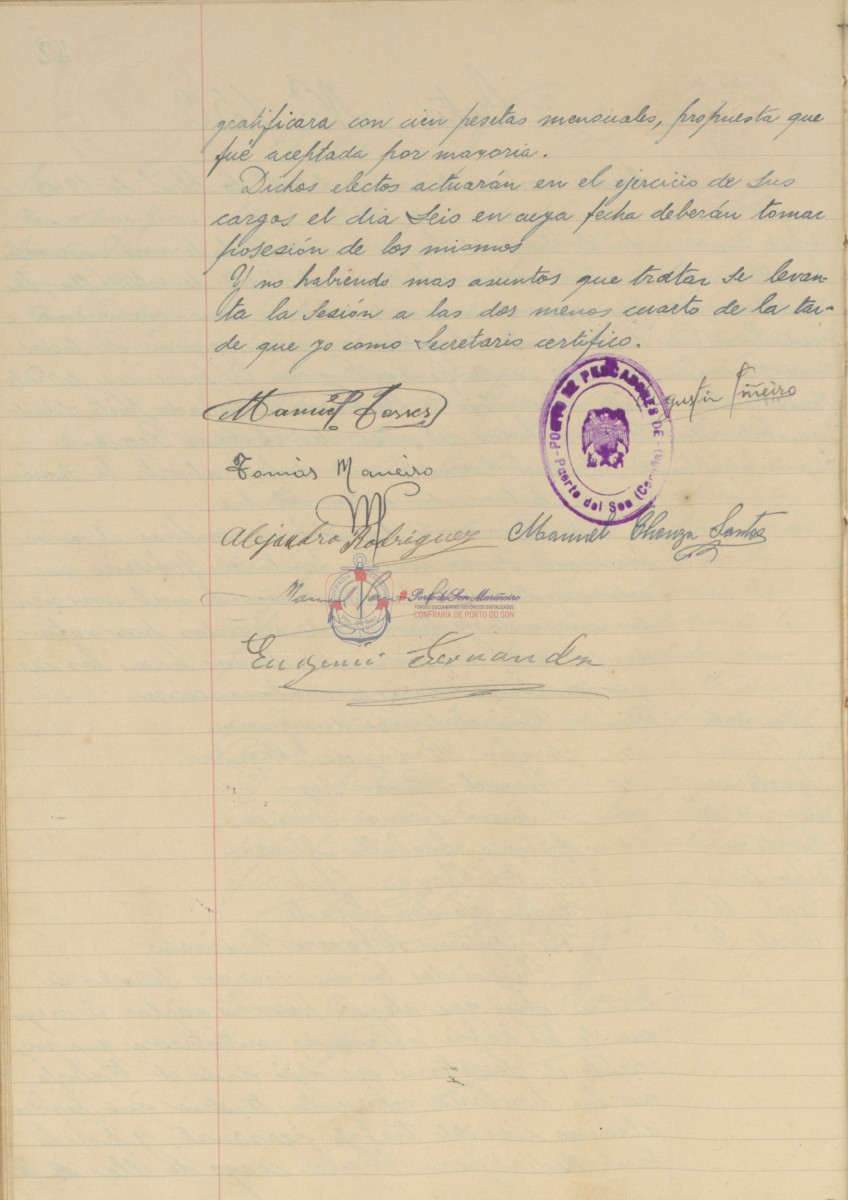 gratificara con cien pesetas mensuales, propuesta que
fué aceptada por mayoria.
Dichos electos actuarán en el ejercicio de sus
cargos el dia seis en cuya fecha deberán tomar
posesión de los mismos
Y no habiendo mas asuntos que tratar se levan-
ta la sesión a las dos menos cuarto de la tar-
de que yo como Secretario certifico.
Manuel Torres
POSITO DE PESCADORES DE
Puerto del Son (Coruña)
Agustin Piñeiro
Tomás Maneiro
Alejandro Rodriguez
Manuel Chonza Santos
Manuel
#Porto do Son Mariñeiro
FONDOS DOCUMENTAIS HISTÓRICOS DIXITALIZADOS
CONFRARÍA DE PORTO DO SON
Eugenio Fernandez